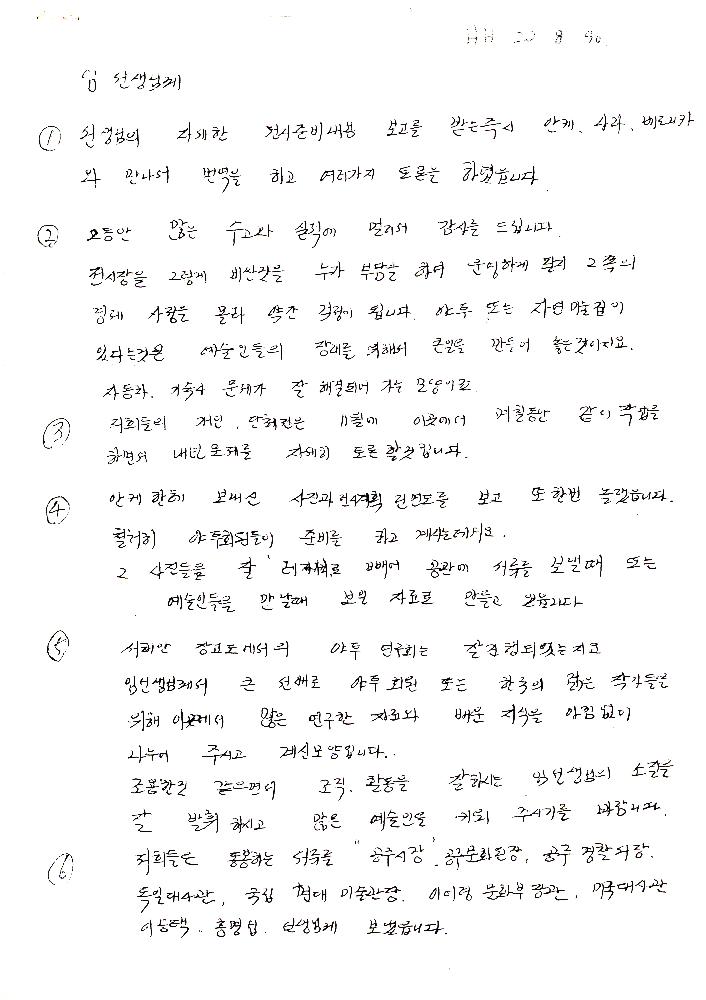 HH 20 8 90
임 선생님께
① 선생님의 자세한 전시준비내용 보고를 받는즉시 안케, 사라, 베로니카
와 만나서 번역을 하고 여러가지 토론을 하였습니다.
② 그동안 많은 수고와 실적에 멀리서 감사를 드립니다.
전시장을 그렇게 비싼것을 누가 부담을 하여 운영하게 될지 그쪽의
경제 사정을 몰라 약간 걱정이 됩니다. 야투 또는 자연미술집이
있다는것은 예술인들의 장래를 위해서 큰일을 만들어 놓은것이지요.
자동차, 기숙사 문제가 잘 해결되어 가는 모양이로
③ 저희들의 개인, 단체전은 11월에 이곳에서 며칠동안 같이 작업을
하면서 내년문제를 자세히 토론할것입니다.
④ 안케 한테 보내신 사진과 전시계획 리스트를 보고 또한번 놀랬습니다.
철저히 야투회원들이 준비를 하고 계시는데서요.
그 사진들을 잘 빼어 공관에 서류를 보낼때 또는
예술인들을 만날때 보일 자료로 만들고 있읍니다
⑤ 서해안 장고도에서의 야투 연구회는 잘진행되었는지요
임선생님께서 큰 선배로 야투 회원 또는 한국의 젊은 작가들을
위해 이곳에서 많은 연구한 자료와 배운 지식을 아낌없이
나누어 주시고 계신모양입니다.
조용한것 같으면서 조직, 활동을 잘하시는 임선생님의 소질을
잘 발휘 하시고 많은 예술인을 키워 주시기를 바랍니다.
⑥ 저희들은 동봉하는 서류를 "공주시장", 공주문화원장, 공주 경찰서장,
독일대사관, 국립 현대 미술관장, 이어령 문화부장관, 미국대사관
이승택, 홍명섭 선생님께 보냈읍니다.